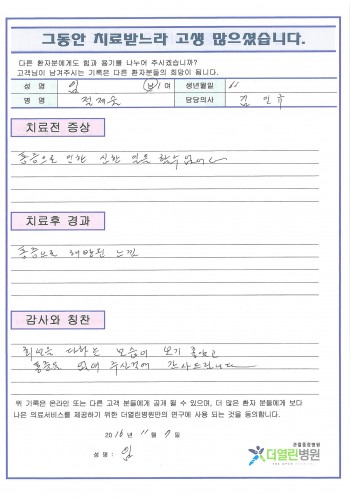 그동안 치료받느라 고생 많으셨습니다.
다른 환자분에게도 힘과 용기를 나누어 주시겠습니까?
고객님이 남겨주시는 기록은 다른 환자분들의 희망이 됩니다.
성 명 임 남/여 생년월일
병 명 담당의사 김
치료전 증상
통증으로 인한 일을 할수없어
치료후 경과
통증으로 해방된 느낌
감사와 칭찬
최선을 다하는 모습이 보기 좋았고
통증도 없애 주신것에 감사드립니다
위 기록은 온라인 또는 다른 고객 분들에게 공개 될 수 있으며, 더 많은 환자 분들에게 보다
나은 의료서비스를 제공하기 위한 더열린병원만의 연구에 사용 되는 것을 동의합니다.
2016년 11월 7일
성 명 : 임
관절중점병원
더열린병원
THE OPEN HOSPITAL